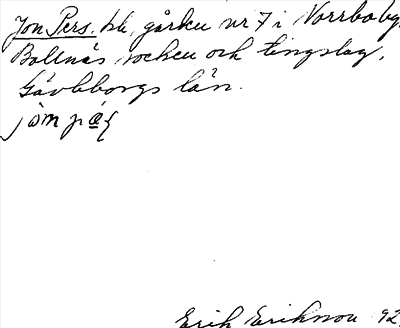 Jon Pers, kb, gården nr 7 i Norrbo by,
Bollnäs socken och tingslag,
Gävleborgs län.
jòm pǽ
Erik Erikson 92